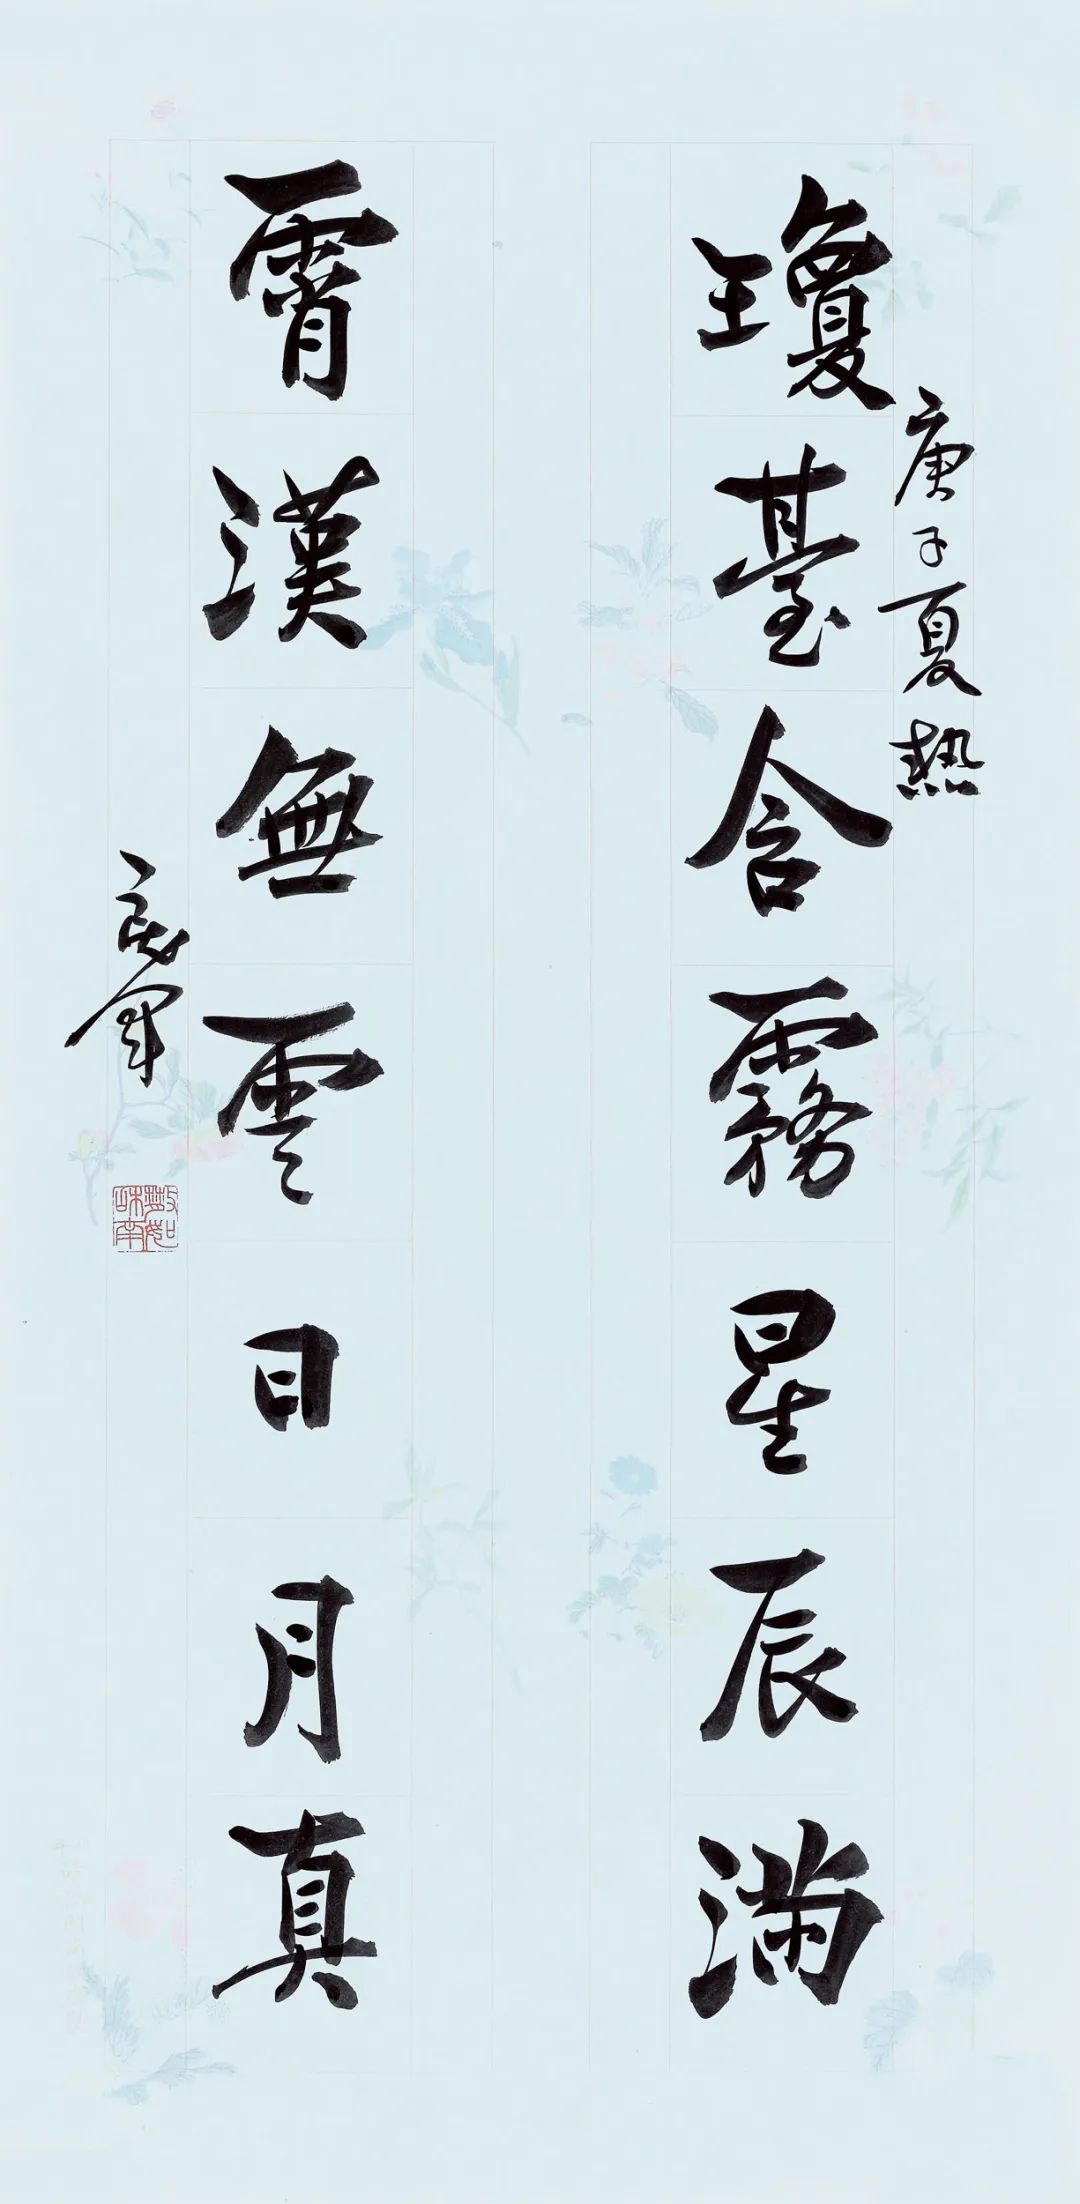 庚子夏熱
瓊臺含霧星辰滿
霄漢無雲日月真